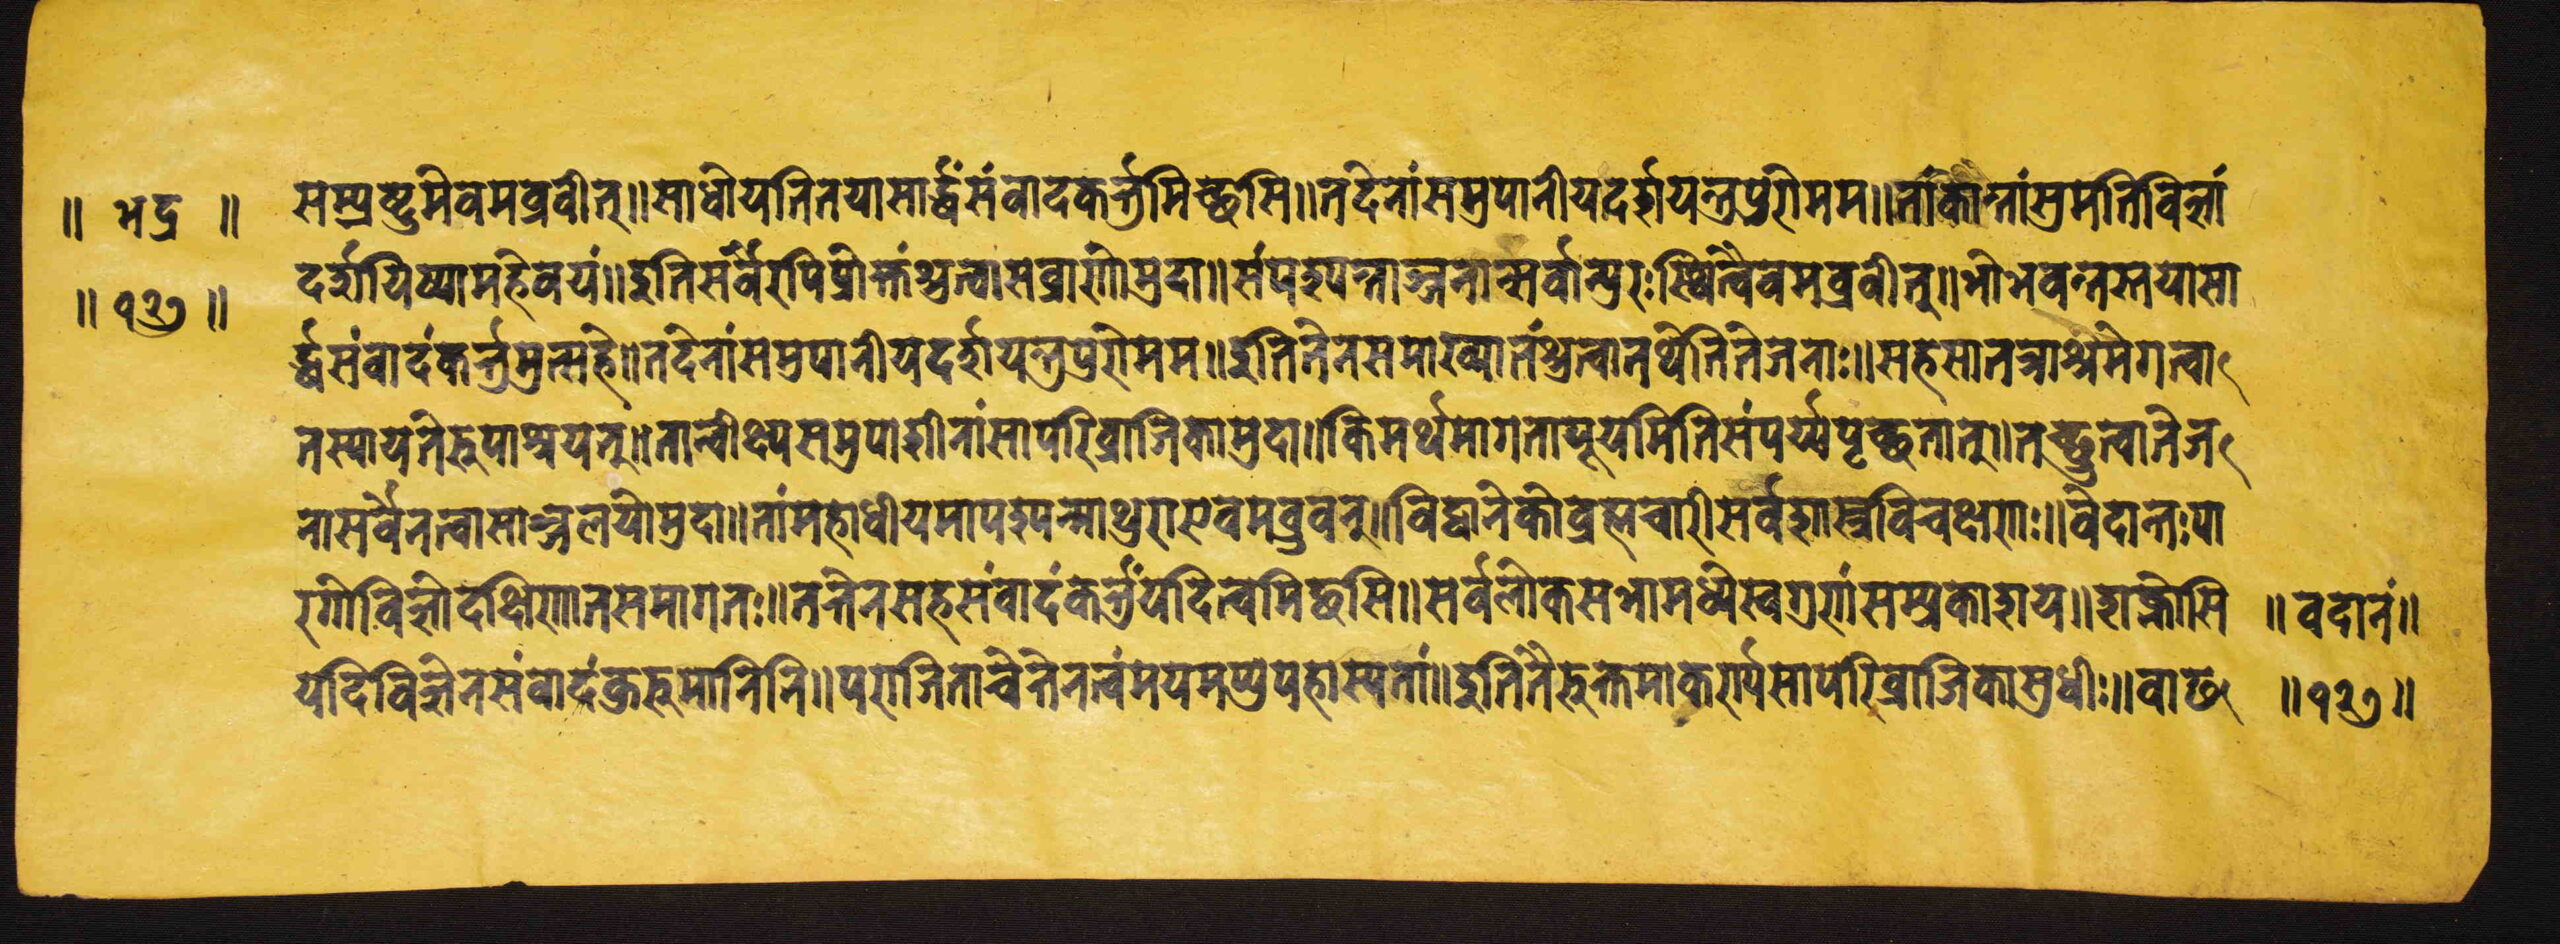 ॥ भद्र ॥
॥ १३७ ॥
सम्प्रष्टुमेवमब्रवीत्॥साधो यदि तया सार्द्धं संवादकर्त्तुमिच्छसि॥तदेनां समुपानीय दर्शयन्तु पुरो मम॥तां कान्तां सुमतिविज्ञां
दर्शयिष्यामहे वयं॥इति सर्वैरपि प्रोक्तं श्रुत्वा स ब्राह्मणो मुदा॥संपश्यन्ताञ्जनान्सर्वान्पुरः स्थित्वैवमब्रवीत्॥भो भवन्तस्तया सा
र्द्धं संवादं कर्त्तुमुत्सहे॥तदेनां समुपानीय दर्शयन्तु पुरो मम॥इति तेन समाख्यातं श्रुत्वा तथेति ते जनाः॥सहसा तत्राश्रमे गत्वा
तस्या यतेरुपाश्रयत्॥तान्वीक्ष्य समुपाशीनां सा परिव्राजिका मुदा॥किमर्थमागता यूयमिति संपर्य्यपृच्छतात्॥तच्छ्रुत्वा ते ज
नासर्वे नत्वा साञ्जलयो मुदा॥तां महाधीयमापश्यन्माथुरा एवमब्रुवन्॥विद्वानेको ब्रह्मचारी सर्वशास्त्रविचक्षणः॥वेदान्तःपा
रगो विज्ञो दक्षिणात समागतः॥तत्तेन सह संवादं कर्त्तुं यदि त्वमिच्छसि॥सर्वलोकसभामध्ये स्वगुणं सम्प्रकाशय॥शक्तोसि
यदि विज्ञेन संवादं कुरु मानिनि॥पराजिता चेत्तेन त्वं मयमप्युपहास्यतां॥इति तैरुक्तमाकर्ण्य सा परिव्राजिका सुधीः॥वाछ
॥ वदानं॥
॥१३७॥